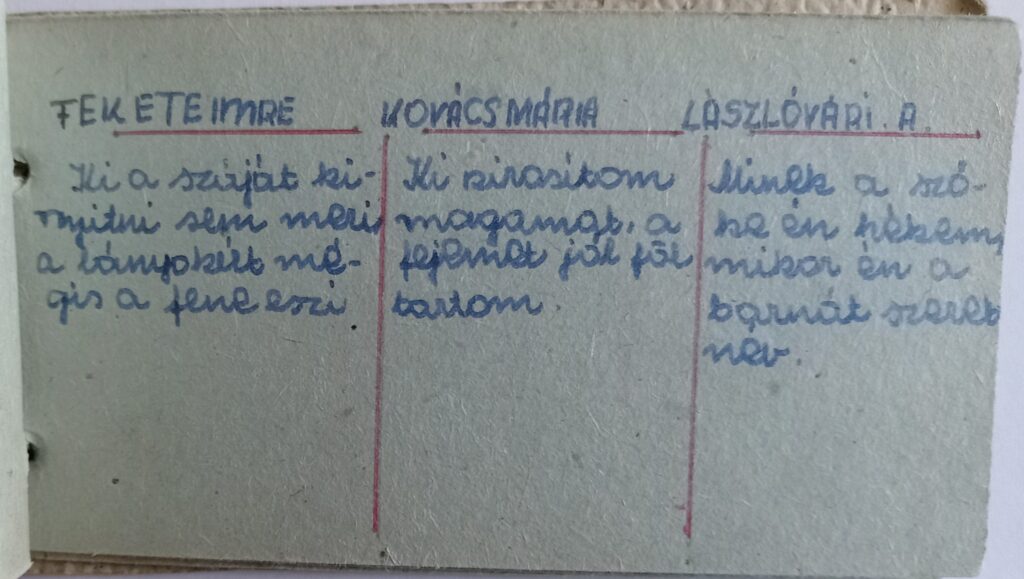 FEKETE IMRE
Ki a száját ki-
nyitni sem meri
a lányokért mé-
gis a fene eszi
KOVÁCS MÁRIA
Ki pirositom
magamat, a
fejemet jól föl
tartom.
LÁSZLÓVÁRI. A.
Minek a sző-
ke én nékem,
mikor én a
barnát szeret
ném.